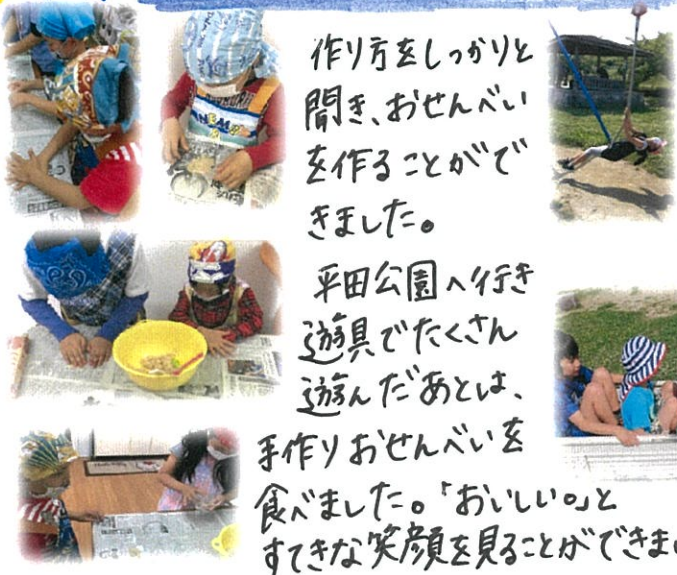 作り方をしっかりと
聞き、おせんべい
を作ることがで
きました。
平田公園へ行き
遊具でたくさん
遊んだあとは、
手作りおせんべいを
食べました。「おいしい。」と
すてきな笑顔を見ることができまし